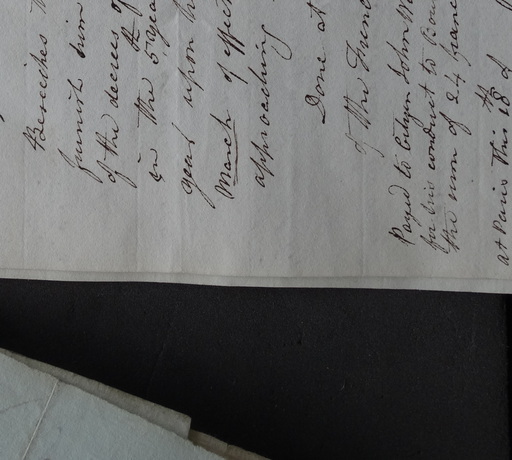 Breeches
furnish him
of the decrees of
in the 5th year
year upon
March of
approaching
Done at
of the French
Payed to Citizen John
for his conduct to
the sum of 24 francs
at Paris this 18th of